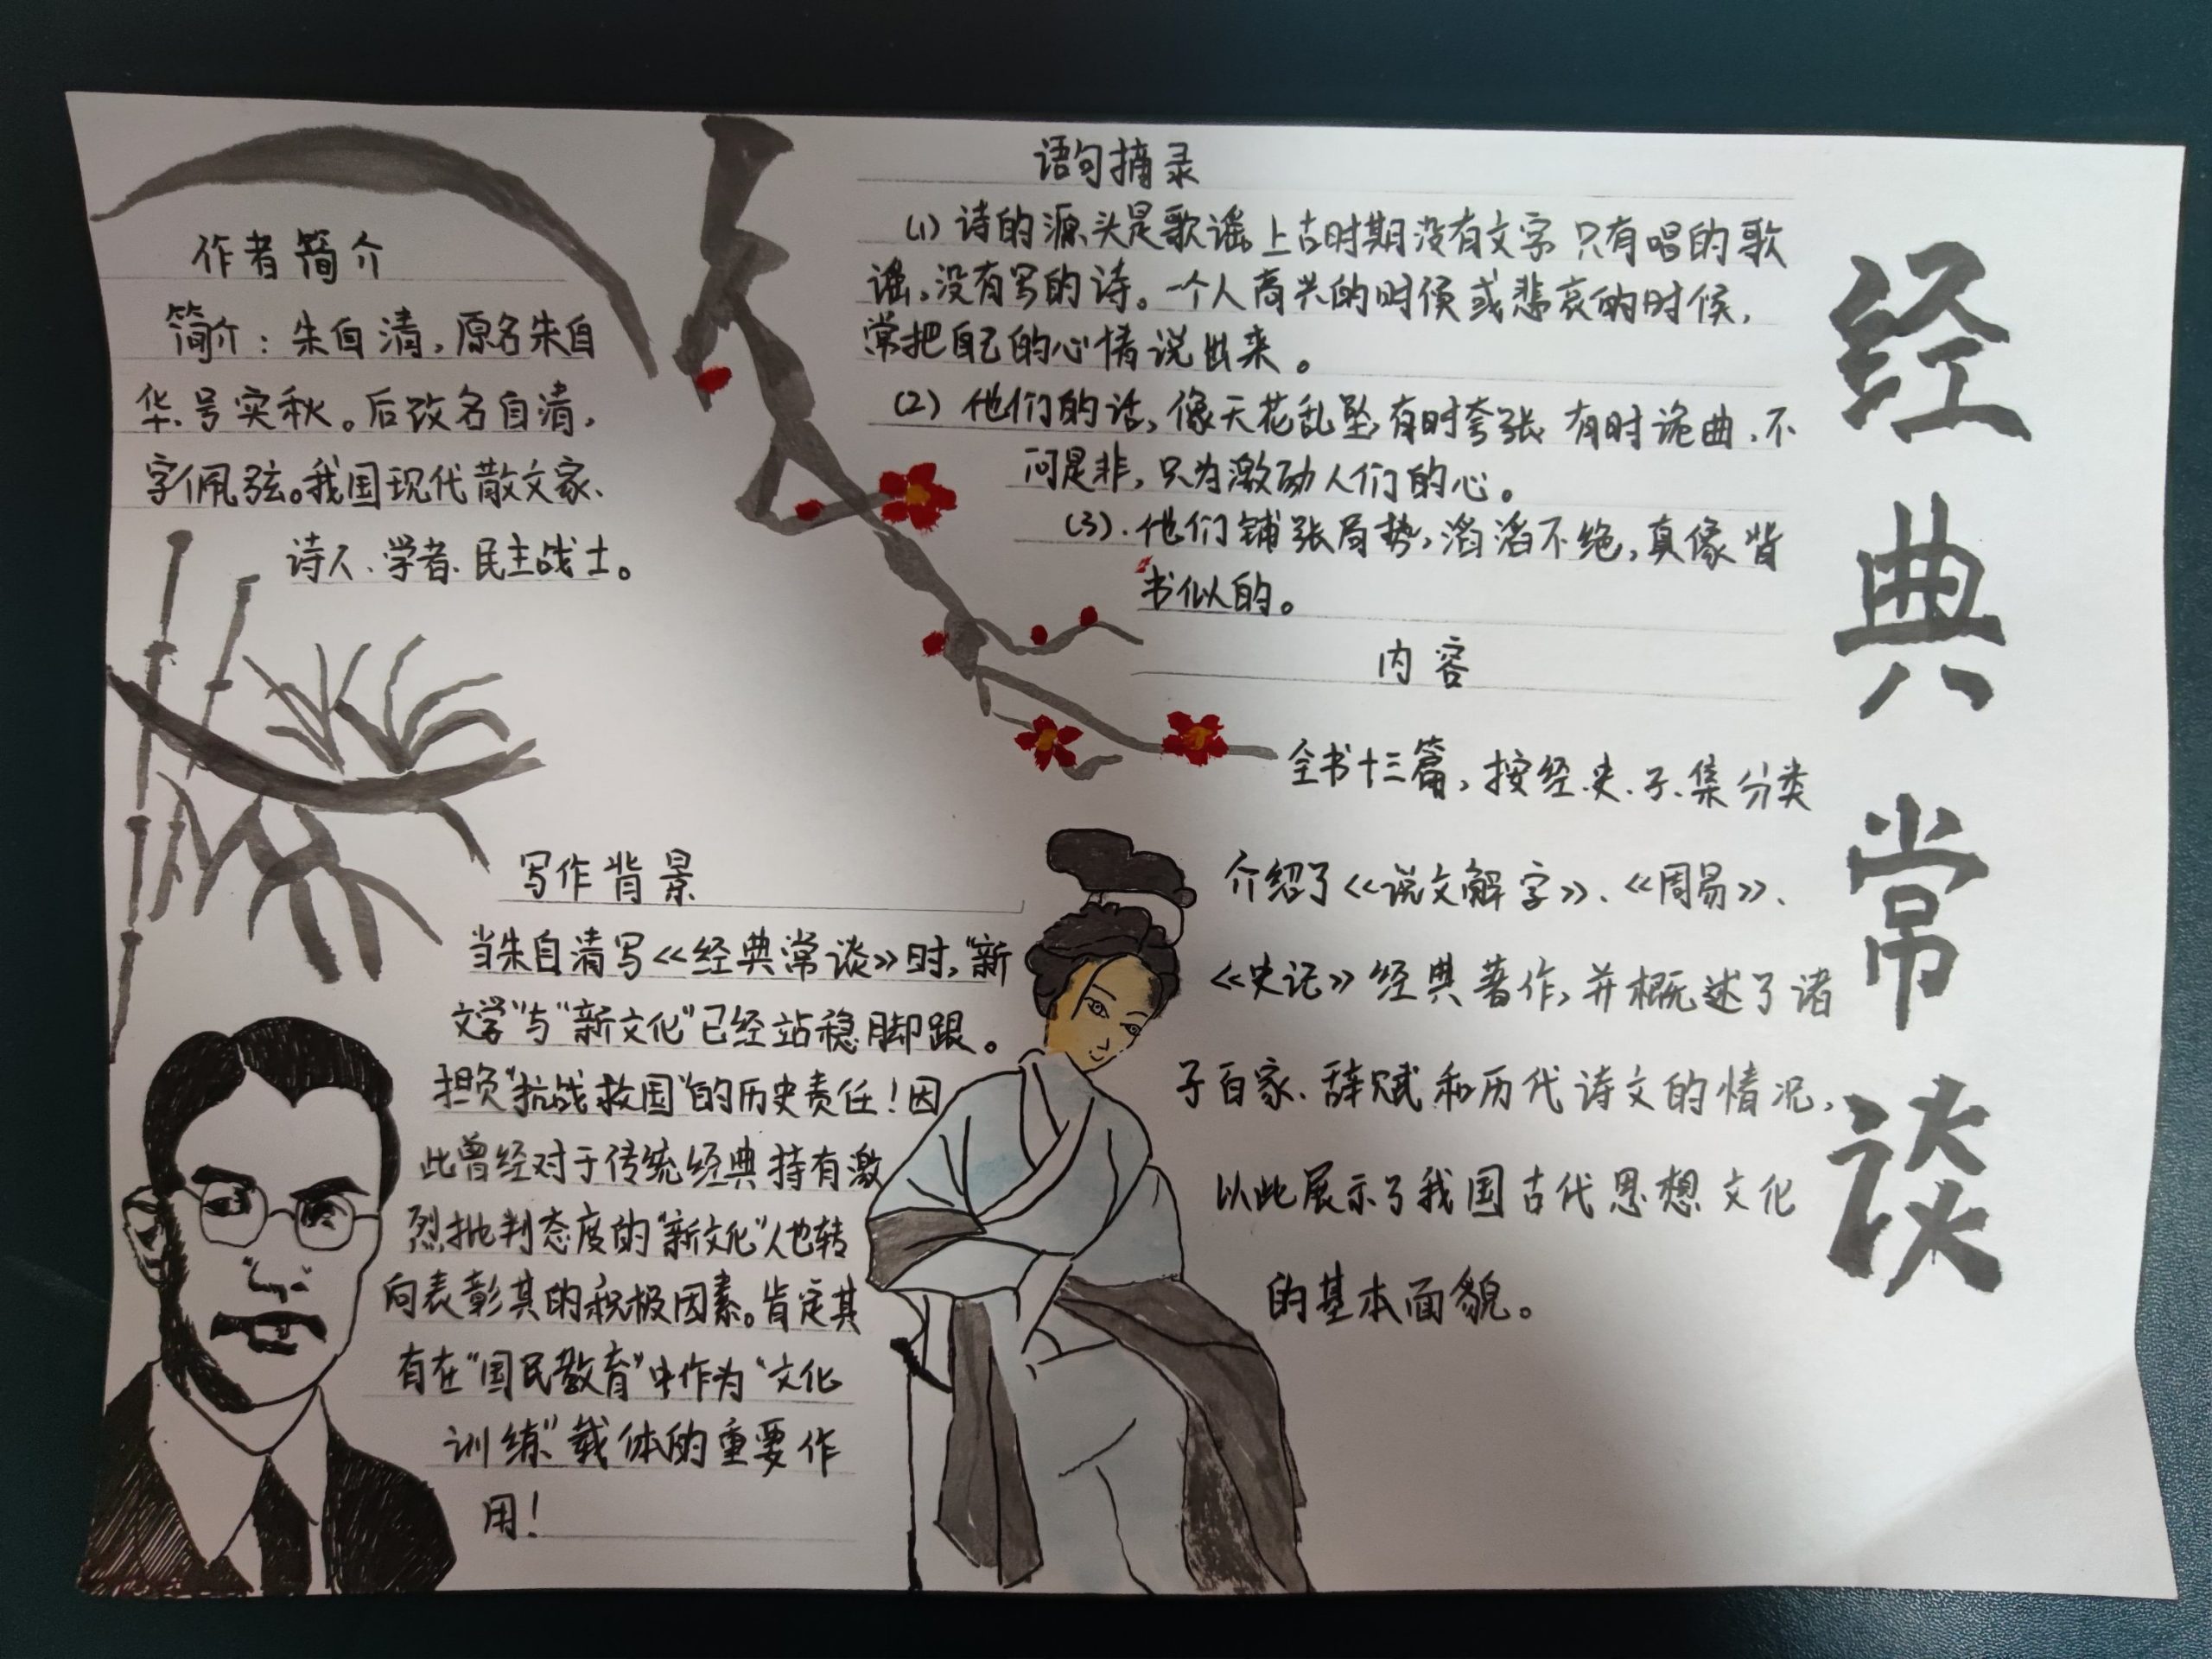 经典常谈
作者简介
简介：朱自清，原名朱自
华、号实秋。后改名自清，
字佩弦。我国现代散文家、
诗人、学者、民主战士。
语句摘录
(1) 诗的源头是歌谣。上古时期没有文字 只有唱的歌
谣，没有写的诗。一个人高兴的时候或悲哀的时候，
常把自己的心情说出来。
(2) 他们的话，像天花乱坠，有时夸张 有时诡曲，不
问是非，只为激动人们的心。
(3). 他们铺张局势，滔滔不绝，真像背
书似的。
内容
全书十三篇，按经、史、子、集分类
介绍了《说文解字》、《周易》、
《史记》经典著作，并概述了诸
子百家、辞赋和历代诗文的情况，
以此展示了我国古代思想文化
的基本面貌。
写作背景
当朱自清写《经典常谈》时，“新
文学”与“新文化”已经站稳脚跟。
担负“抗战救国”的历史责任！因
此曾经对于传统经典持有激
烈批判态度的“新文化”人也转
向表彰其的积极因素。肯定其
有在“国民教育”中作为“文化
训练”载体的重要作
用！